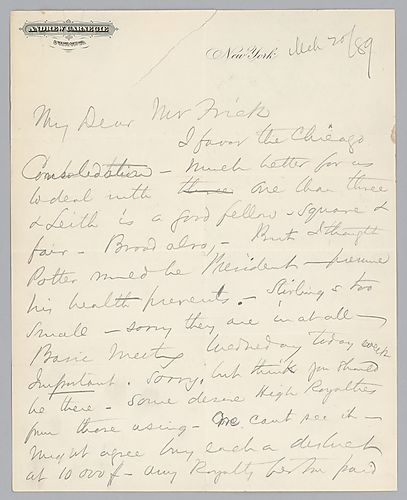 ANDREW CARNEGIE
New York. Mch 20/89
My Dear Mr Frick
I favor the Chicago
Consolidation – much better for us
to deal with three one than three
& Leith is a good fellow – square &
fair – Broad also, – But I thought
Potter must be President – presume
his health prevents. – Stirling is too
small – sorry they are in at all –
Basic Meeting Wednesday today week
Important. Sorry, but think you should
be there – some desire High Royalties
from those using – One can't see it –
Might agree buy each a district
at 10 000 – any Royalty to be paid